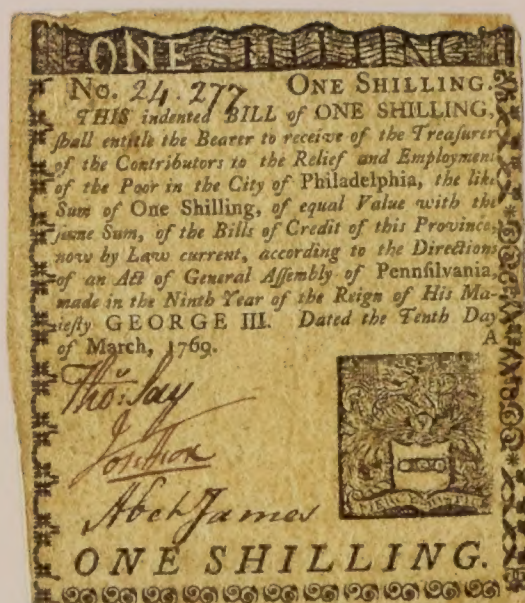 ONE SHILLING
No. 24.277 ONE SHILLING.
THIS indented BILL of ONE SHILLING,
ſhall entitle the Bearer to receive of the Treaſurer
of the Contributors to the Relief and Employment
of the Poor in the City of Philadelphia, the like
Sum of One Shilling, of equal Value with the
ſame Sum, of the Bills of Credit of this Province,
now by Law current, according to the Directions
of an Act of General Aſſembly of Pennſilvania,
made in the Ninth Year of the Reign of His Ma-
jeſty GEORGE III. Dated the Tenth Day
of March, 1769. A
Thos: Say
Abel James
MERCY JUSTICE
ONE SHILLING.